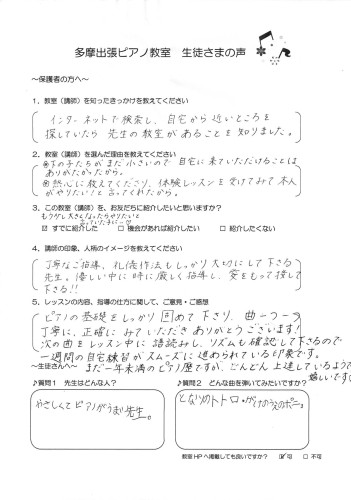 多摩出張ピアノ教室 生徒さまの声
～保護者の方へ～
1、教室(講師)を知ったきっかけを教えてください
インターネットで検索し、自宅から近いところを
探していたら 先生の教室があることを知りました。
2、教室(講師)を選んだ理由を教えてください
◎下の子たちがまだ小さいので 自宅に来ていただけることは
ありがたかったから。
◎熱心に教えてくださり、体験レッスンを受けてみて本人
がやりたい!と言ってくれたから。
3、この教室(講師)を、お友だちに紹介したいと思いますか?
もう少し大きくなったらやりたいと
言っていた子に…
☑ すでに紹介した □ 機会があれば紹介したい □ 紹介したくない
4、講師の印象、人柄のイメージを教えてください
丁寧なご指導、礼儀作法もしっかり大切にして下さる
先生。優しい中に時に厳しく指導し、愛をもって接して
下さる!!
5、レッスンの内容、指導の仕方に関して、ご意見・ご感想
ピアノの基礎をしっかり固めて下さり、曲一つ一つ
丁寧に、正確に みていただき ありがとうございます!
次の曲をレッスン中に 譜読みし、リズムも確認して下さるので
一週間の自宅練習がスムーズに進められている印象です。
～生徒さんへ～ まだ一年未満のピアノ歴ですが、どんどん上達しているようで
嬉しいです
♪質問1 先生はどんな人?
やさしくてピアノがうまい先生。
♪質問2 どんな曲を弾いてみたいですか?
となりのトトロ。がけのうえのポニョ。
教室HPへ掲載しても良いですか? ☑ 可 □ 不可